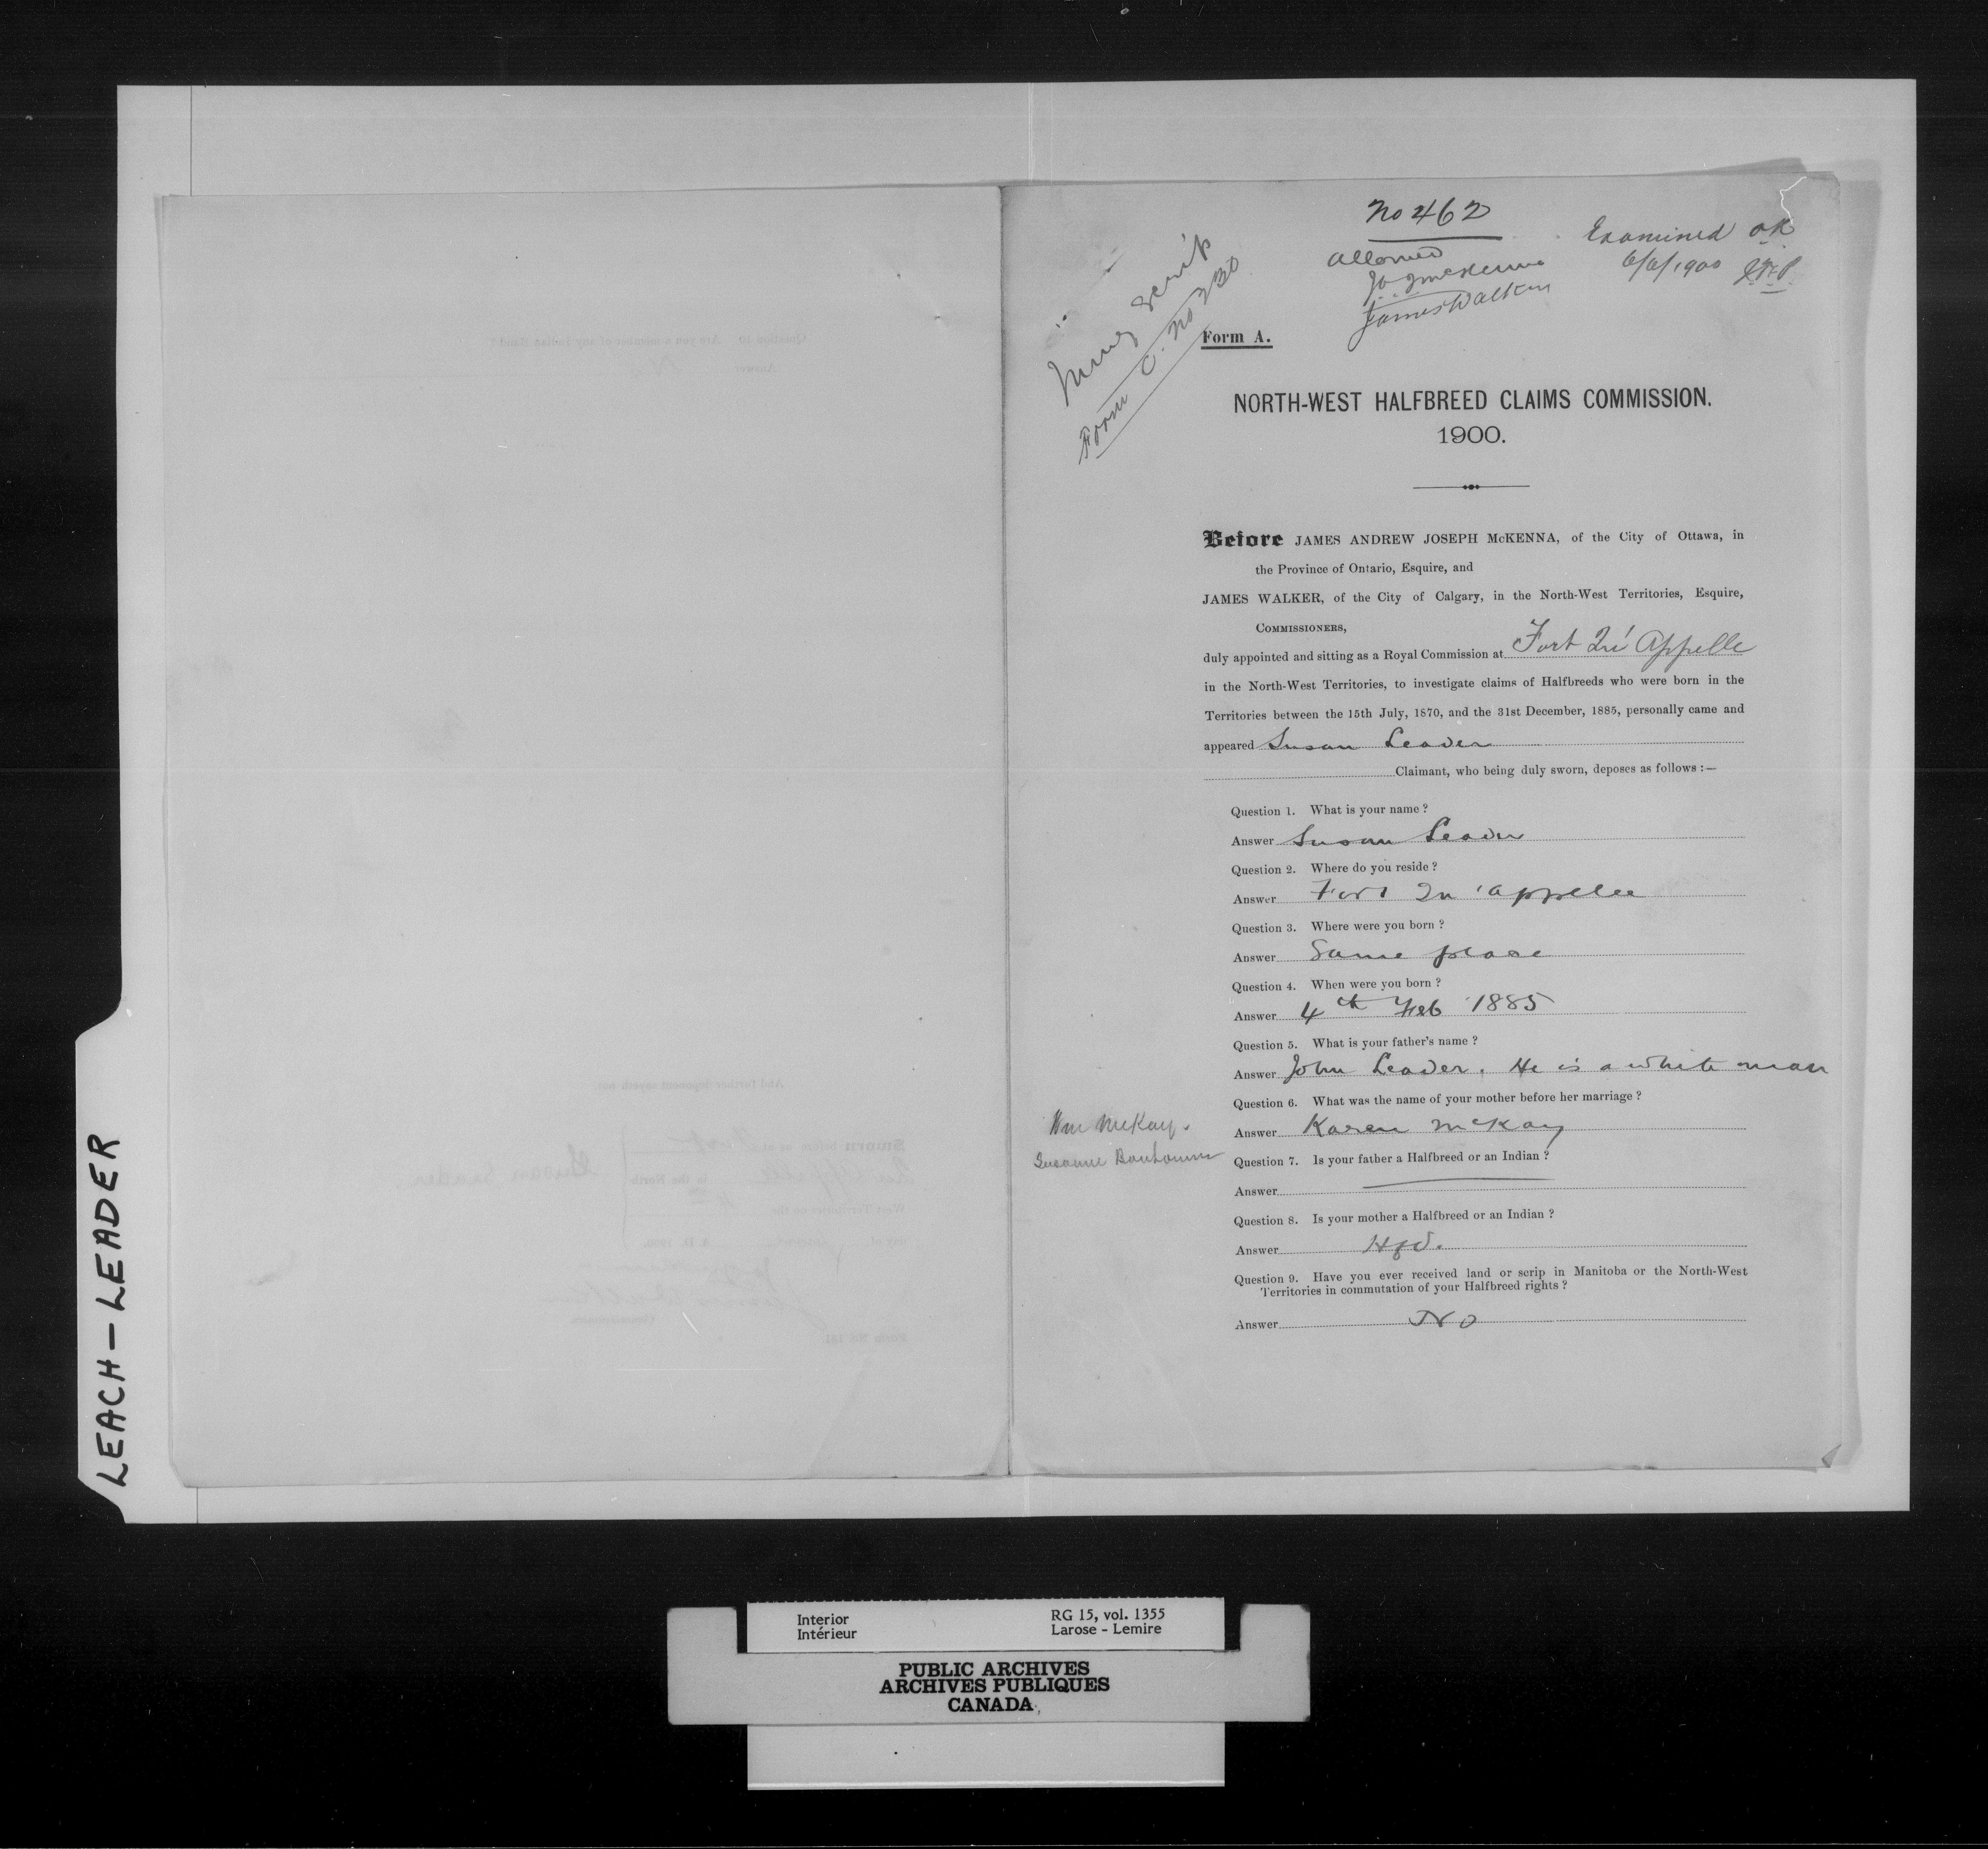 LEACH - LEADER
No 462
Allowed
JAJ McKenna
James Walker
Examined OK
6/6/1900
Money Scrip
Form C. No 230
Form A.
NORTH-WEST HALFBREED CLAIMS COMMISSION.
1900.
Before JAMES ANDREW JOSEPH McKENNA, of the City of Ottawa, in
the Province of Ontario, Esquire, and
JAMES WALKER, of the City of Calgary, in the North-West Territories, Esquire,
COMMISSIONERS,
duly appointed and sitting as a Royal Commission at Fort Qu'Appelle
in the North-West Territories, to investigate claims of Halfbreeds who were born in the
Territories between the 15th July, 1870, and the 31st December, 1885, personally came and
appeared Susan Leader
Claimant, who being duly sworn, deposes as follows :—
Question 1. What is your name ?
Answer Susan Leader
Question 2. Where do you reside ?
Answer Fort Qu'appelle
Question 3. Where were you born ?
Answer Same place
Question 4. When were you born ?
Answer 4th Feb 1885
Question 5. What is your father's name ?
Answer John Leader. He is a white man
Question 6. What was the name of your mother before her marriage ?
Wm McKay.
Answer Karen McKay
Susanne Bonhomme
Question 7. Is your father a Halfbreed or an Indian ?
Answer
Question 8. Is your mother a Halfbreed or an Indian ?
Answer Hfd.
Question 9. Have you ever received land or scrip in Manitoba or the North-West
Territories in commutation of your Halfbreed rights ?
Answer No
Interior
Intérieur
RG 15, vol. 1355
Larose - Lemire
PUBLIC ARCHIVES
ARCHIVES PUBLIQUES
CANADA